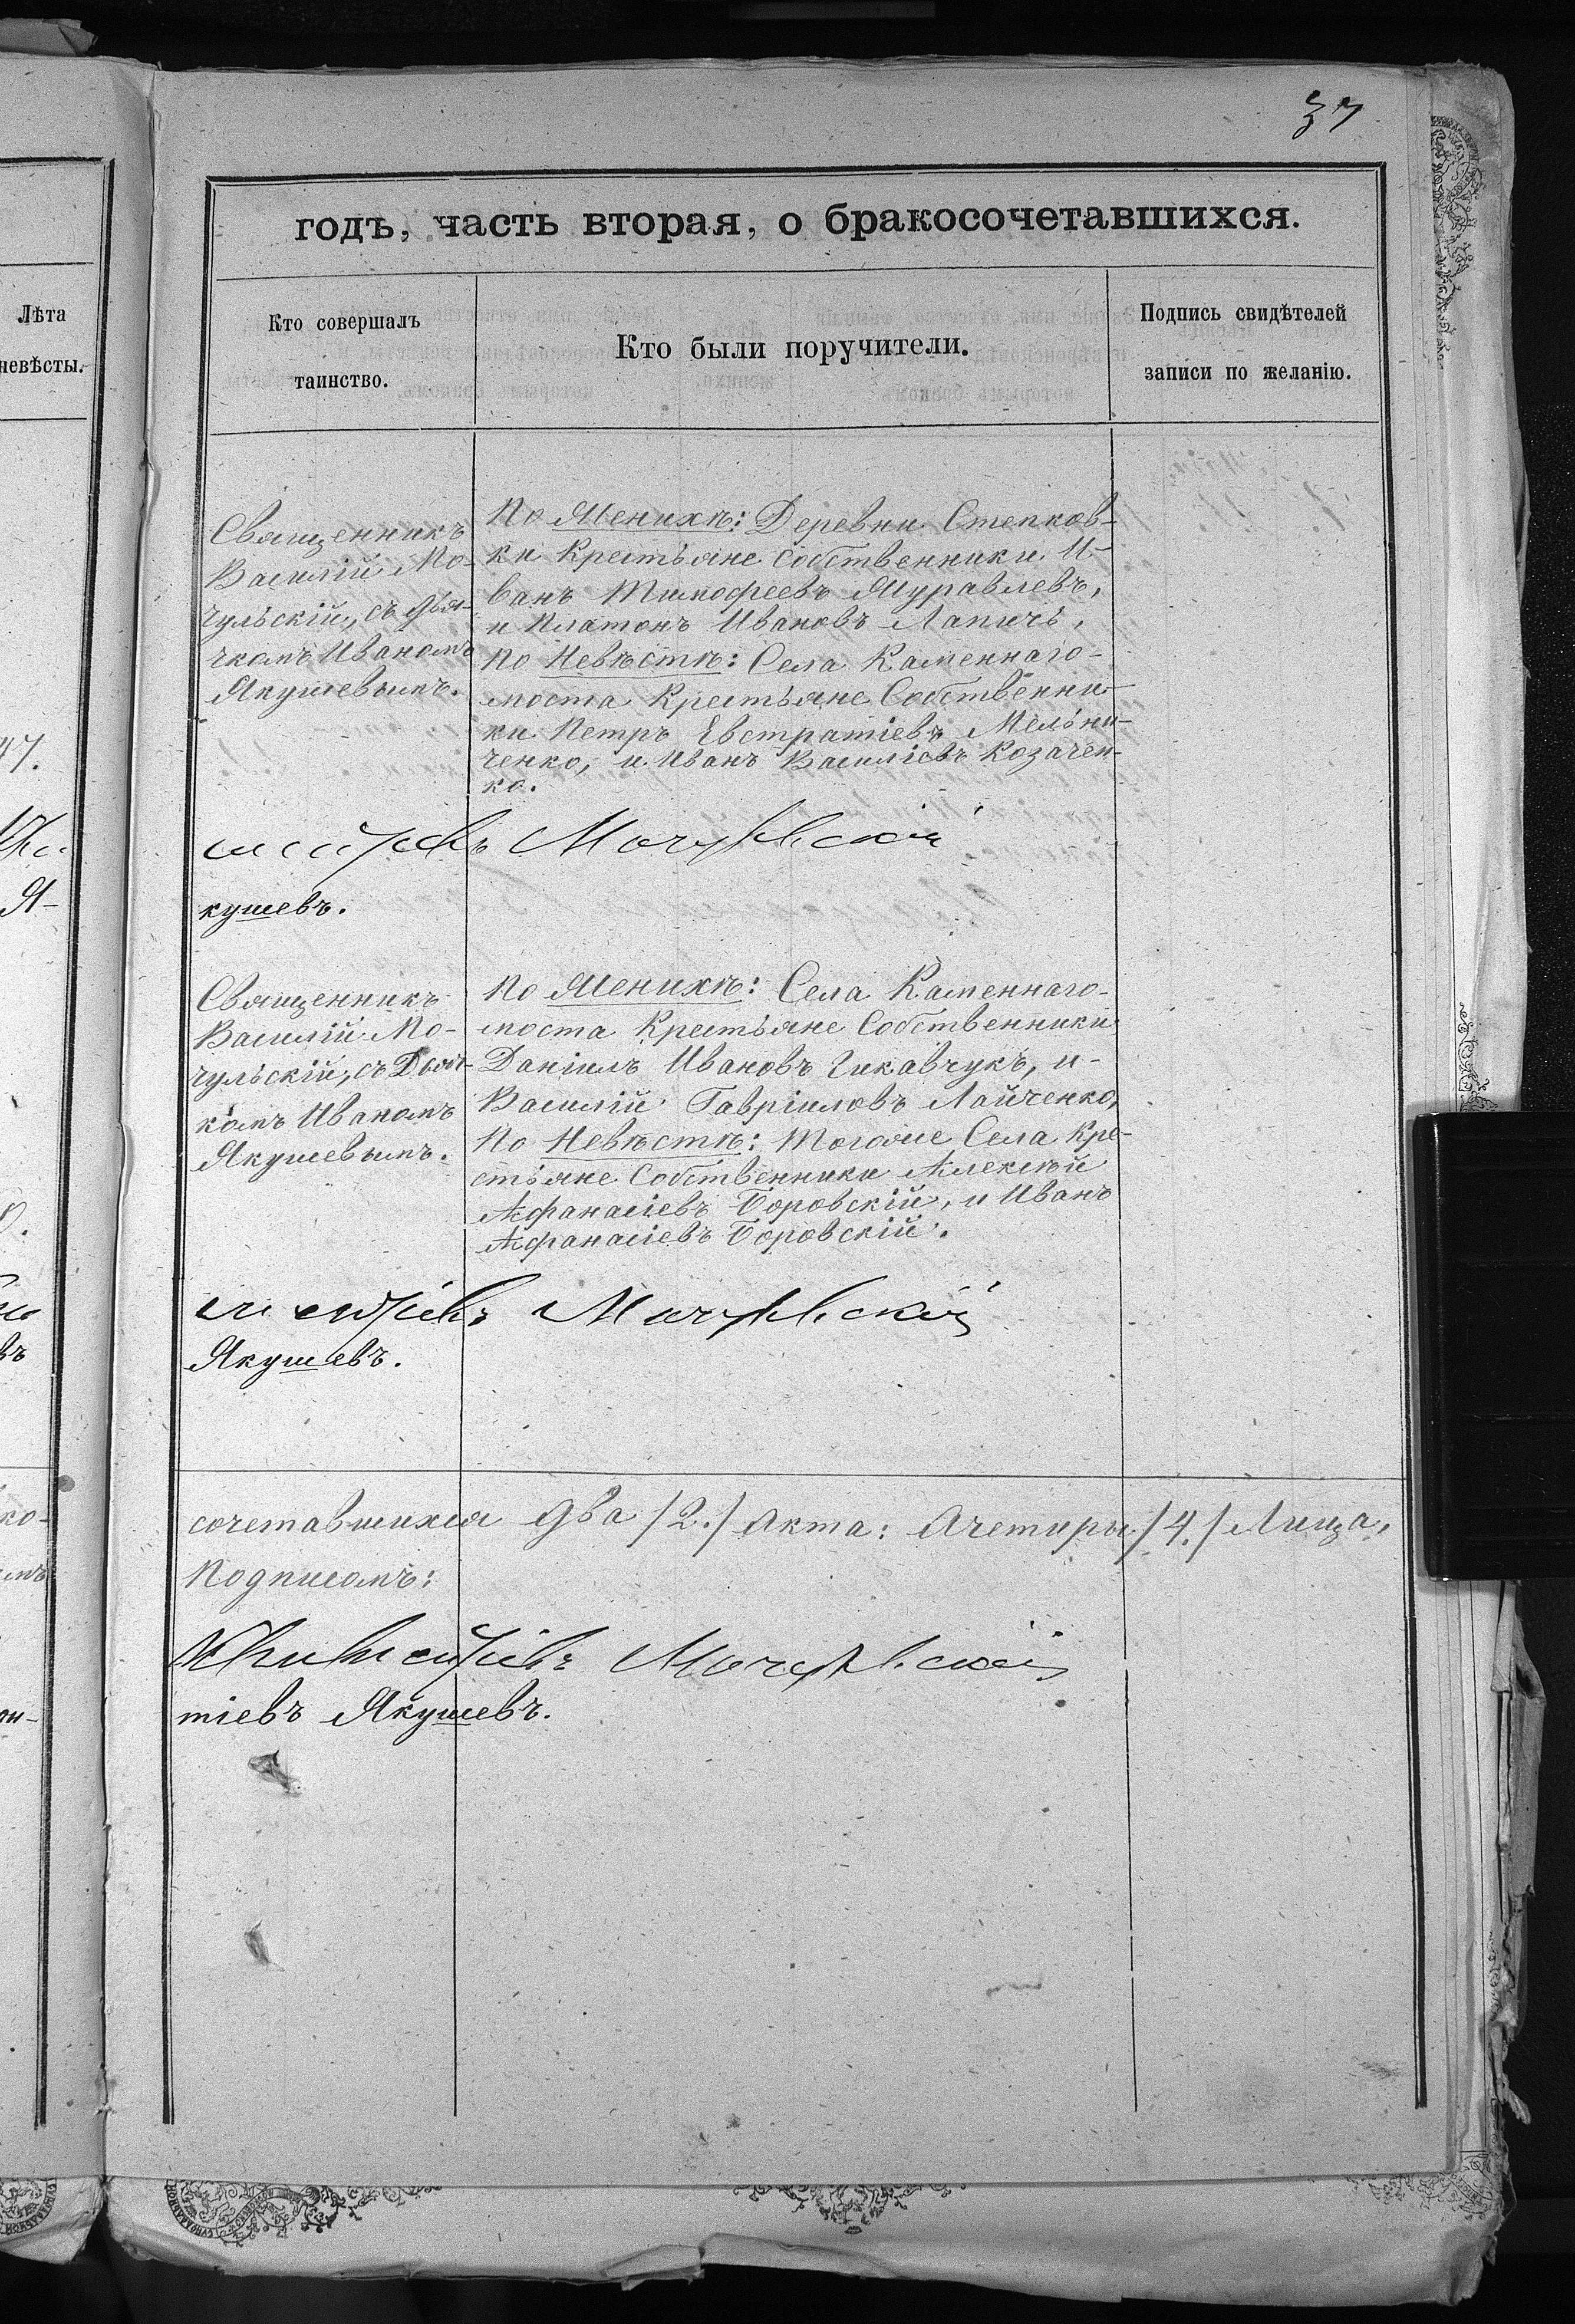 37
годъ, часть вторая, о бракосочетавшихся.
Лѣта
невѣсты.
Кто совершалъ
таинство.
Кто были поручители.
Подпись свидѣтелей
записи по желанію.
Священникъ
Василій Мо-
чульскій, съ дья-
чкомъ Иваномъ
Якушевымъ.
По Женихѣ: Деревни Степков-
ки Крестьяне Собственники И-
ванъ Тимофеевъ Журавлевъ,
и Платонъ Ивановъ Лапичъ,
По Невѣстѣ: Села Каменнаго-
моста Крестьяне Собственни-
ки Петръ Евстратіевъ Мельни-
ченко, и Иванъ Василіевъ Козачен-
ко.
Мочульскій
кушевъ.
Священникъ
Василій Мо-
чульскій, съ Дьяч-
комъ Иваномъ
Якушевымъ.
По Женихѣ: Села Каменнаго-
моста Крестьяне Собственники
Даніилъ Ивановъ Чикавчукъ, и-
Василій Гавріиловъ Лайченко,
По Невѣстѣ: Тогоже Села Кре-
стьяне Собственники Алексѣй
Афанасіевъ Боровскій, и Иванъ
Афанасіевъ Боровскій.
Мочульскій
Якушевъ.
сочетавшихся два /2./ Акта: Ачетыры /4./ Лица,
Подписомъ:
Мочульскій
тіевъ Якушевъ.